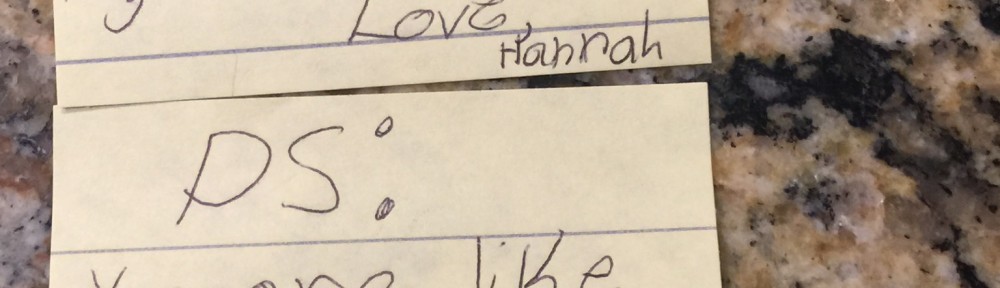 Love,
Hannah
PS:
like